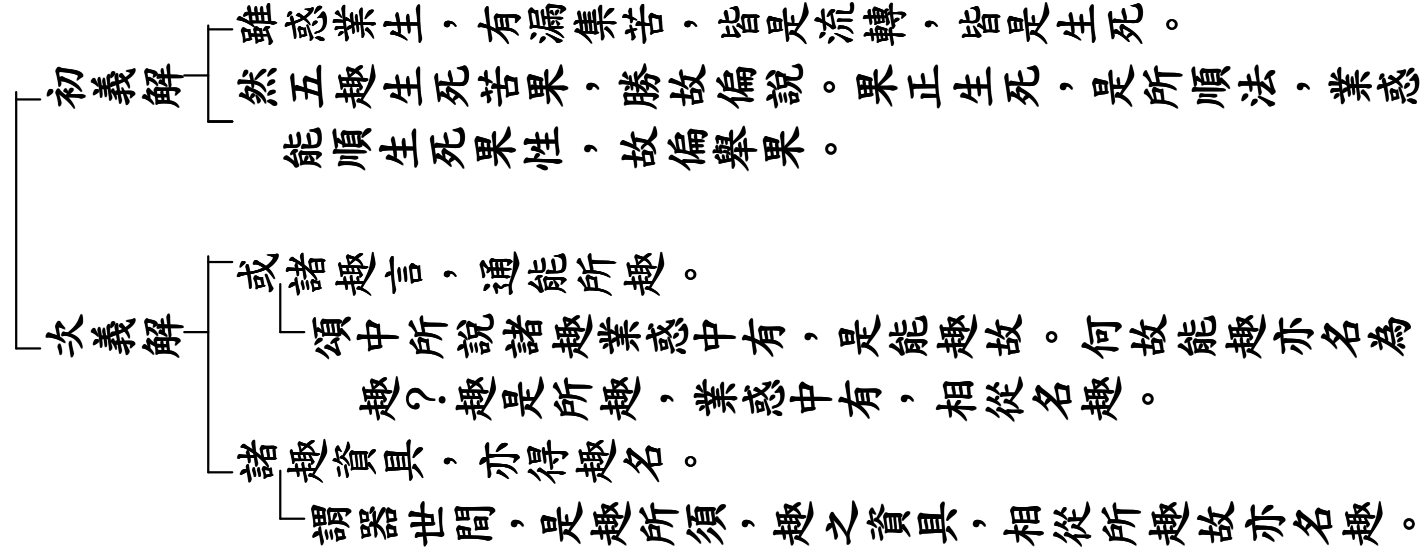 初義解
雖惑業生，有漏集苦，皆是流轉，皆是生死。
然五趣生死苦果，勝故偏說。果正生死，是所順法，業惑
能順生死果性，故偏舉果。
次義解
或諸趣言，通能所趣。
頌中所說諸趣業惑中有，是能趣故。何故能趣亦名為
趣？趣是所趣，業惑中有，相從名趣。
諸趣資具，亦得趣名。
謂器世間，是趣所須，趣之資具，相從所趣故亦名趣。